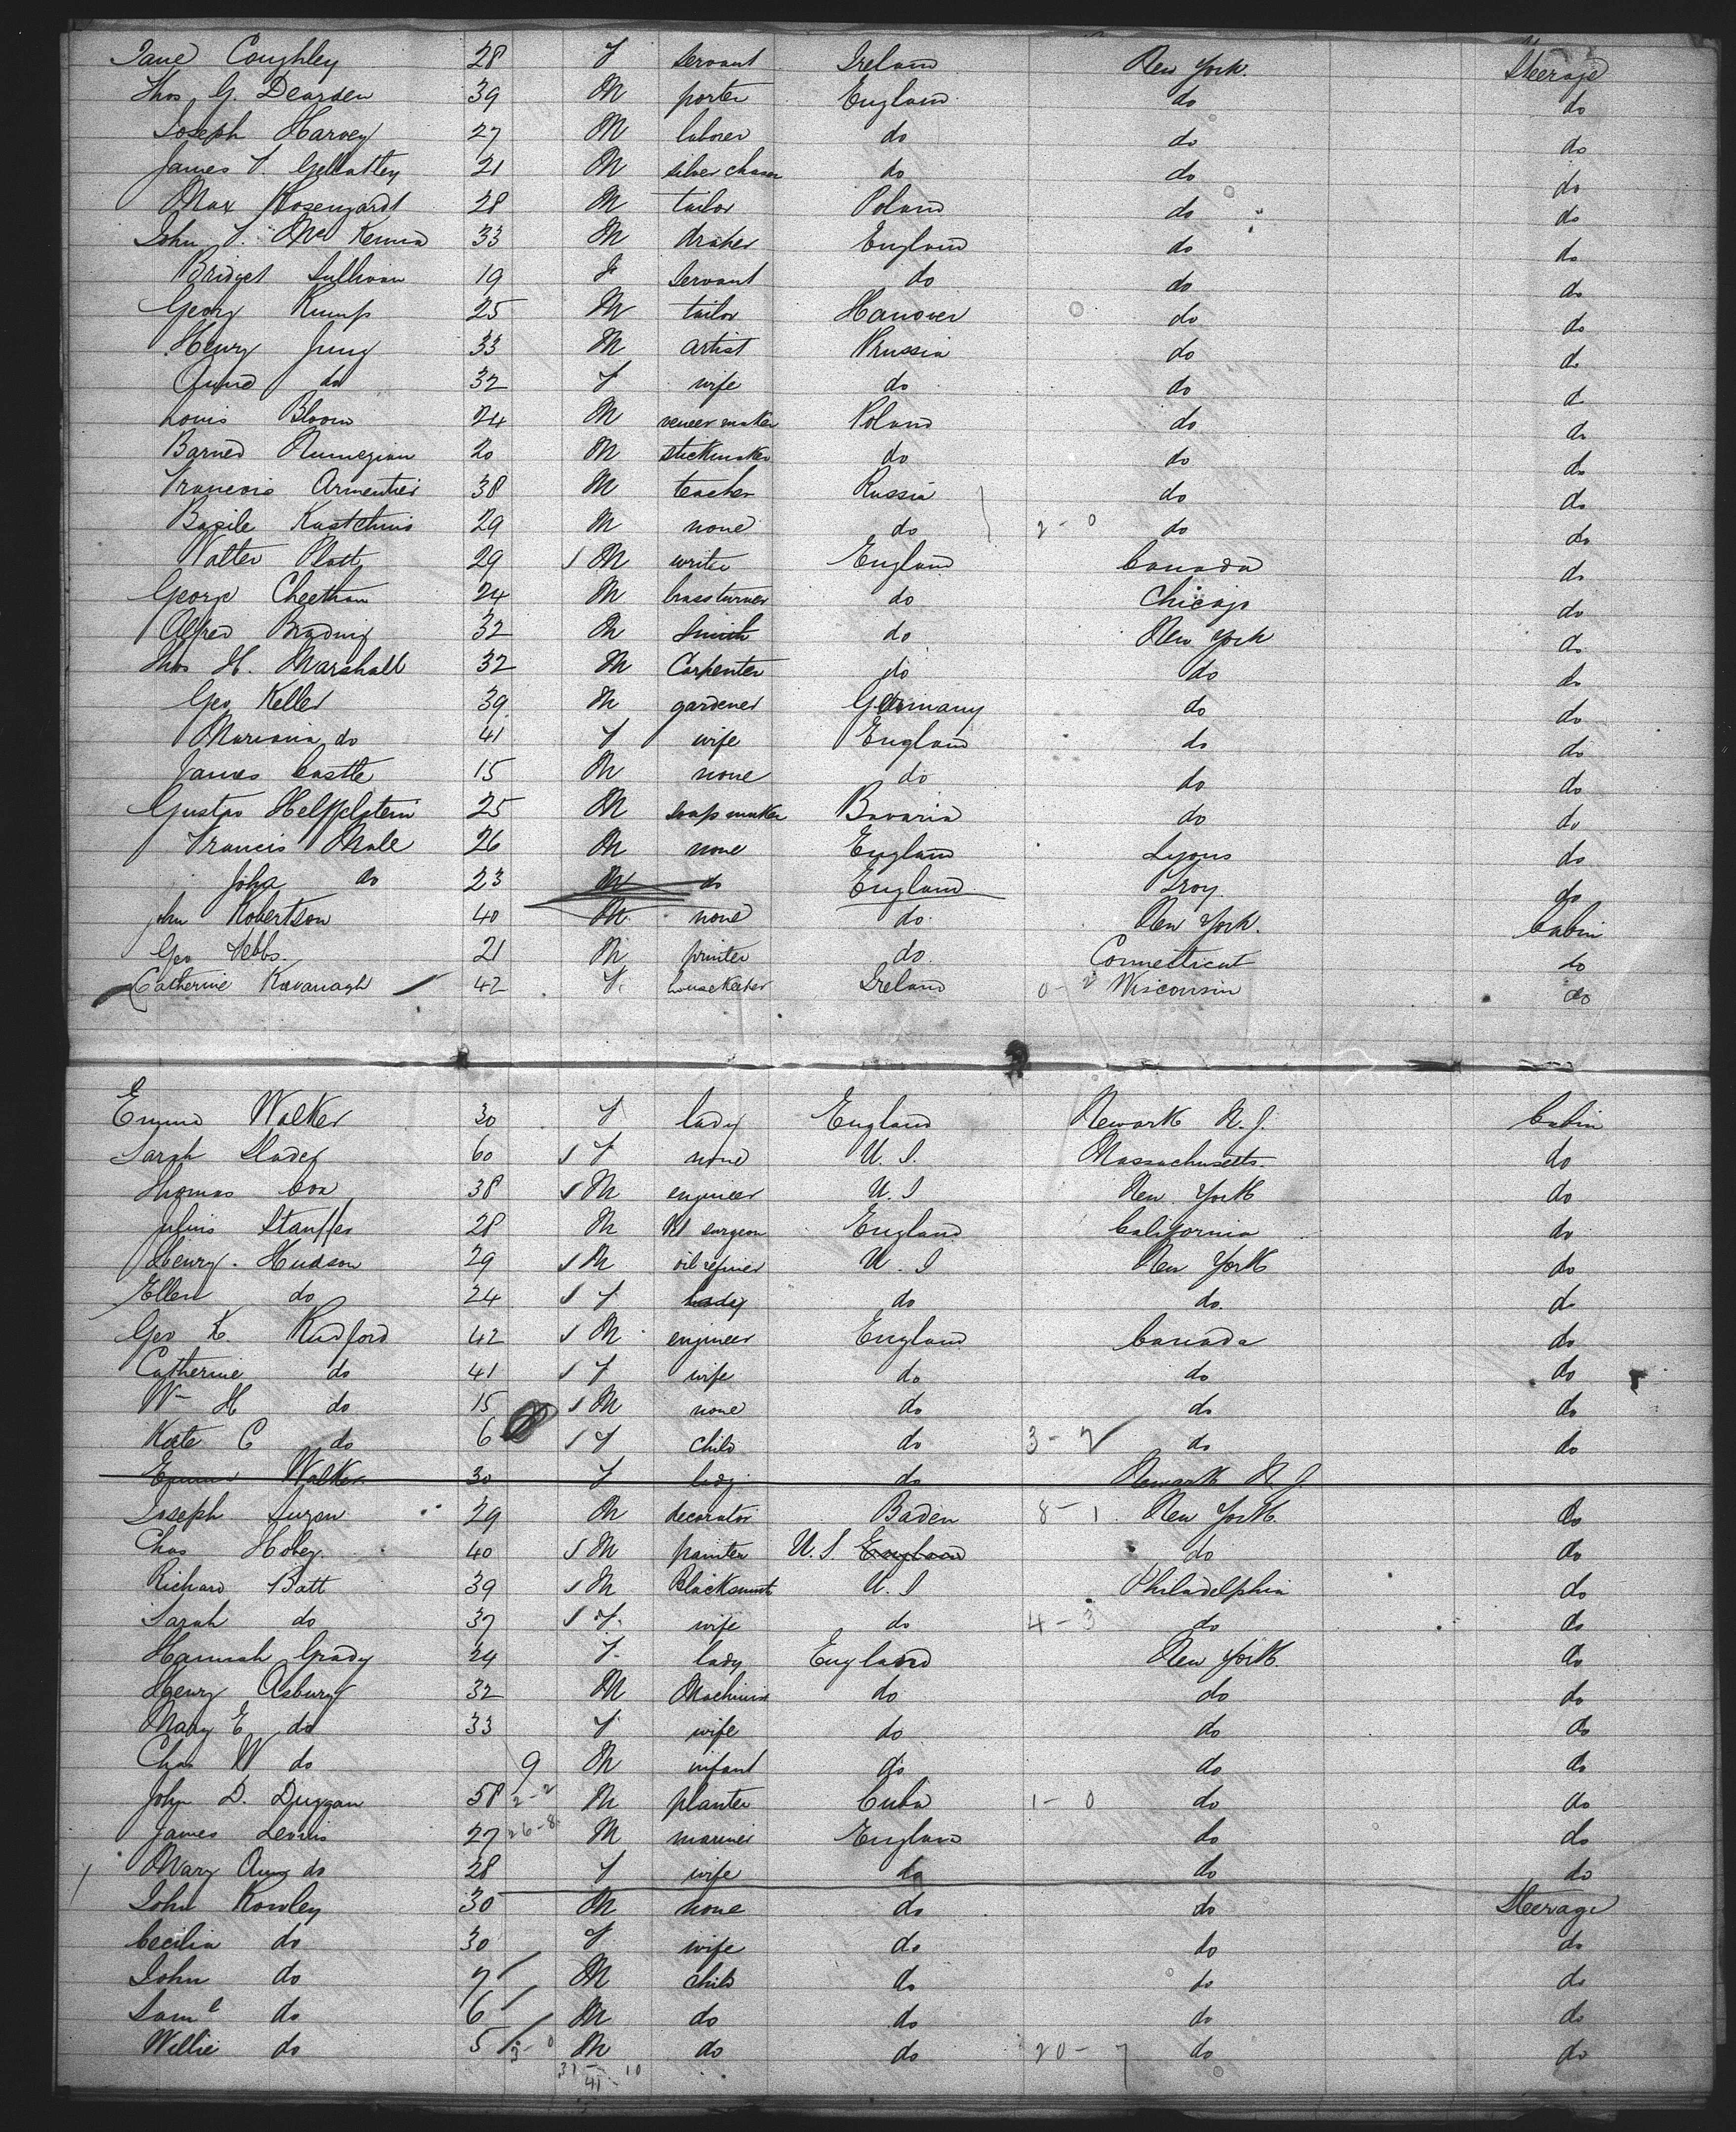 Jane Coughley 28 F servant Ireland New York. Steerage
Thos G. Dearden 39 M porter England do do
Joseph Harvey 27 M laborer do do do
James F. Gellatley 21 M silver chaser do do do
Max Rosengardt 28 M tailor Poland do do
John F. McKenna 33 M draper England do do
Bridget Sullivan 19 F servant do do do
Georg Kump 25 M tailor Hanover do do
Henry Jung 33 M artist Prussia do do
Anna do 32 F wife do do d
Louis Bloom 24 M veneer maker Poland do do
Barned 20 M stickmaker do do do
Francois Armentier 38 M teacher Russia do do
Basile 29 M none do 2-0 do do
Walter Platt 29 M writer England Canada do
George Cheetham 24 M brassturner do Chicago do
Alfred 32 M Smith do New York do
Thos H. Marshall 32 M Carpenter do do do
Geo Keller 39 M gardener Germany do do
Mariana do 41 F wife England do do
James Castle 15 M none do do do
Gustav 25 M soap maker Bavaria do do
Francis Male 26 M none England Lyons do
John do 23 M do England Troy do
Jno Robertson 40 M none do New York. Cabin
Geo Tebbs. 21 M printer do. Connecticut do
Catherine Kavanagh 42 F. housekeeper Ireland Wisconsin do
Emma Walker 30 F lady England Newark N.J. Cabin
Sarah Sladey 60 F none U.S. Massachusetts do
Thomas Cox 38 M engineer U.S New York do
Julius Stauffer 28 M surgeon England California do
Henry. Hudson 29 M oil refiner U.S New York do
Ellen do 24 F lady do do. do
Geo K. Rudford 42 M engineer England Canada do
Catherine do 41 F wife do do do
Wm H do 15 M none do do do
Kate C do 6 F child do 3-2 do do
Emma Walker 30 F lady do Newark N.J.
Joseph Suzon 29 M decorator Baden 8-1 New York do
Chas Hobey. 40 M painter U.S. England do do
Richard Batt 39 M Blacksmith U.S Philadelphia do
Sarah do 37 F. wife do 4-3 do do
Hannah Grady 24 F. lady England New York. do
Henry Asbury 32 M Machinist do do do
Mary E do 33 F wife do do do
Chas W do 9 M infant do do do
John D. Duggan 58 2-2 M planter Cuba 1-0 do do
James Lewis 27 26-8 M mariner England do do
Mary Ann do 28 F wife do do do
John Rowley 30 M none do do Steerage
Cecilia do 30 F wife do do do
John do 7 M child do do do
Saml do 6 M do do do do
Willie do 5 3-0 M do do 20-7 do do
31-10
41